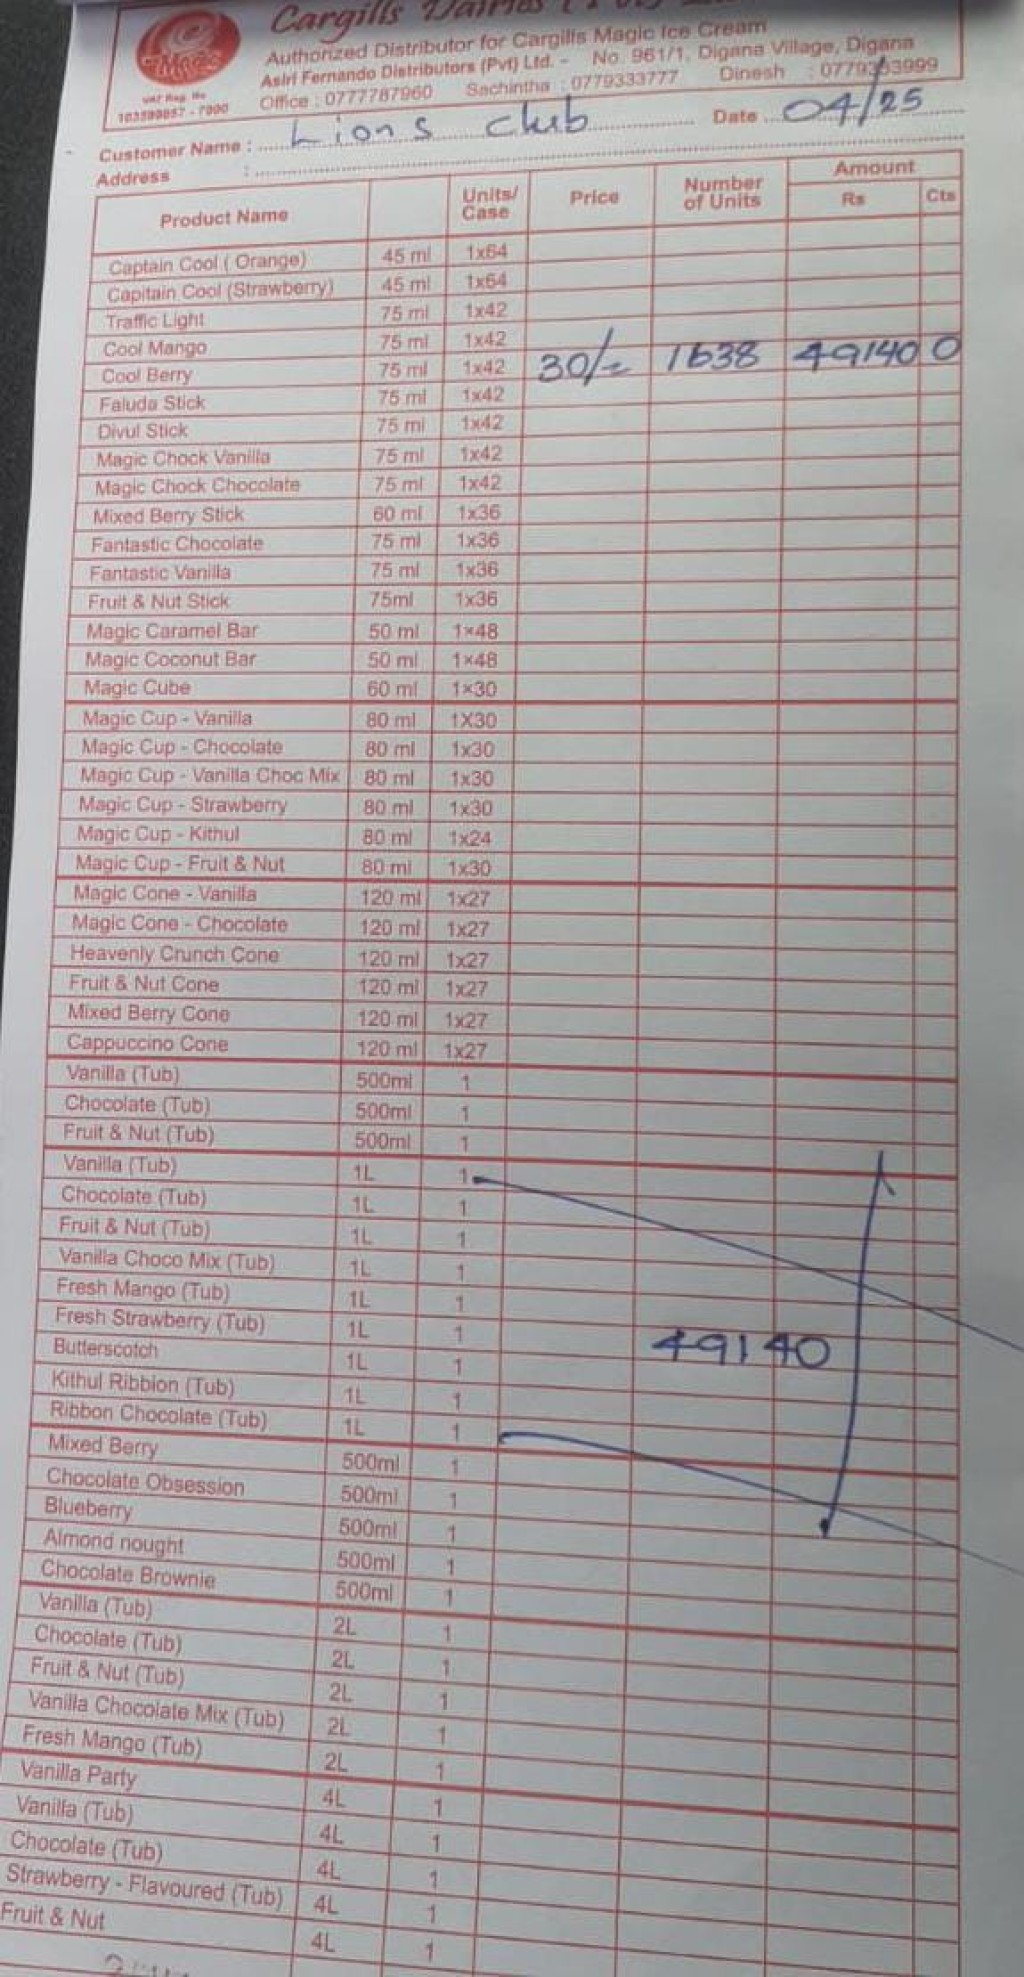 Cargills Dairies (Pvt)
Magic
Authorized Distributor for Cargills Magic Ice Cream
Asiri Fernando Distributors (Pvt) Ltd. - No. 961/1, Digana Village, Digana
VAT Reg. No
Office : 0777787960 Sachintha : 0779333777 Dinesh : 0779363999
Customer Name : Lions Club Date 04/25
Address :
Product Name Units/Case Price Number of Units Amount Rs Cts
Captain Cool ( Orange) 45 ml 1x64
Capitain Cool (Strawberry) 45 ml 1x64
Traffic Light 75 ml 1x42
Cool Mango 75 ml 1x42
Cool Berry 75 ml 1x42 30/= 1638 49140 0
Faluda Stick 75 ml 1x42
Divul Stick 75 ml 1x42
Magic Chock Vanilla 75 ml 1x42
Magic Chock Chocolate 75 ml 1x42
Mixed Berry Stick 60 ml 1x36
Fantastic Chocolate 75 ml 1x36
Fantastic Vanilla 75 ml 1x36
Fruit & Nut Stick 75ml 1x36
Magic Caramel Bar 50 ml 1×48
Magic Coconut Bar 50 ml 1×48
Magic Cube 60 ml 1×30
Magic Cup - Vanilla 80 ml 1X30
Magic Cup - Chocolate 80 ml 1x30
Magic Cup - Vanilla Choc Mix 80 ml 1x30
Magic Cup - Strawberry 80 ml 1x30
Magic Cup - Kithul 80 ml 1x24
Magic Cup - Fruit & Nut 80 ml 1x30
Magic Cone - Vanilla 120 ml 1x27
Magic Cone - Chocolate 120 ml 1x27
Heavenly Crunch Cone 120 ml 1x27
Fruit & Nut Cone 120 ml 1x27
Mixed Berry Cone 120 ml 1x27
Cappuccino Cone 120 ml 1x27
Vanilla (Tub) 500ml 1
Chocolate (Tub) 500ml 1
Fruit & Nut (Tub) 500ml 1
Vanilla (Tub) 1L 1
Chocolate (Tub) 1L 1
Fruit & Nut (Tub) 1L 1
Vanilla Choco Mix (Tub) 1L 1
Fresh Mango (Tub) 1L 1
Fresh Strawberry (Tub) 1L 1 49140
Butterscotch 1L 1
Kithul Ribbion (Tub) 1L 1
Ribbon Chocolate (Tub) 1L 1
Mixed Berry 500ml 1
Chocolate Obsession 500ml 1
Blueberry 500ml 1
Almond nought 500ml 1
Chocolate Brownie 500ml 1
Vanilla (Tub) 2L 1
Chocolate (Tub) 2L 1
Fruit & Nut (Tub) 2L 1
Vanilla Chocolate Mix (Tub) 2L 1
Fresh Mango (Tub) 2L 1
Vanilla Party 4L 1
Vanilla (Tub) 4L 1
Chocolate (Tub) 4L 1
Strawberry - Flavoured (Tub) 4L 1
Fruit & Nut 4L 1